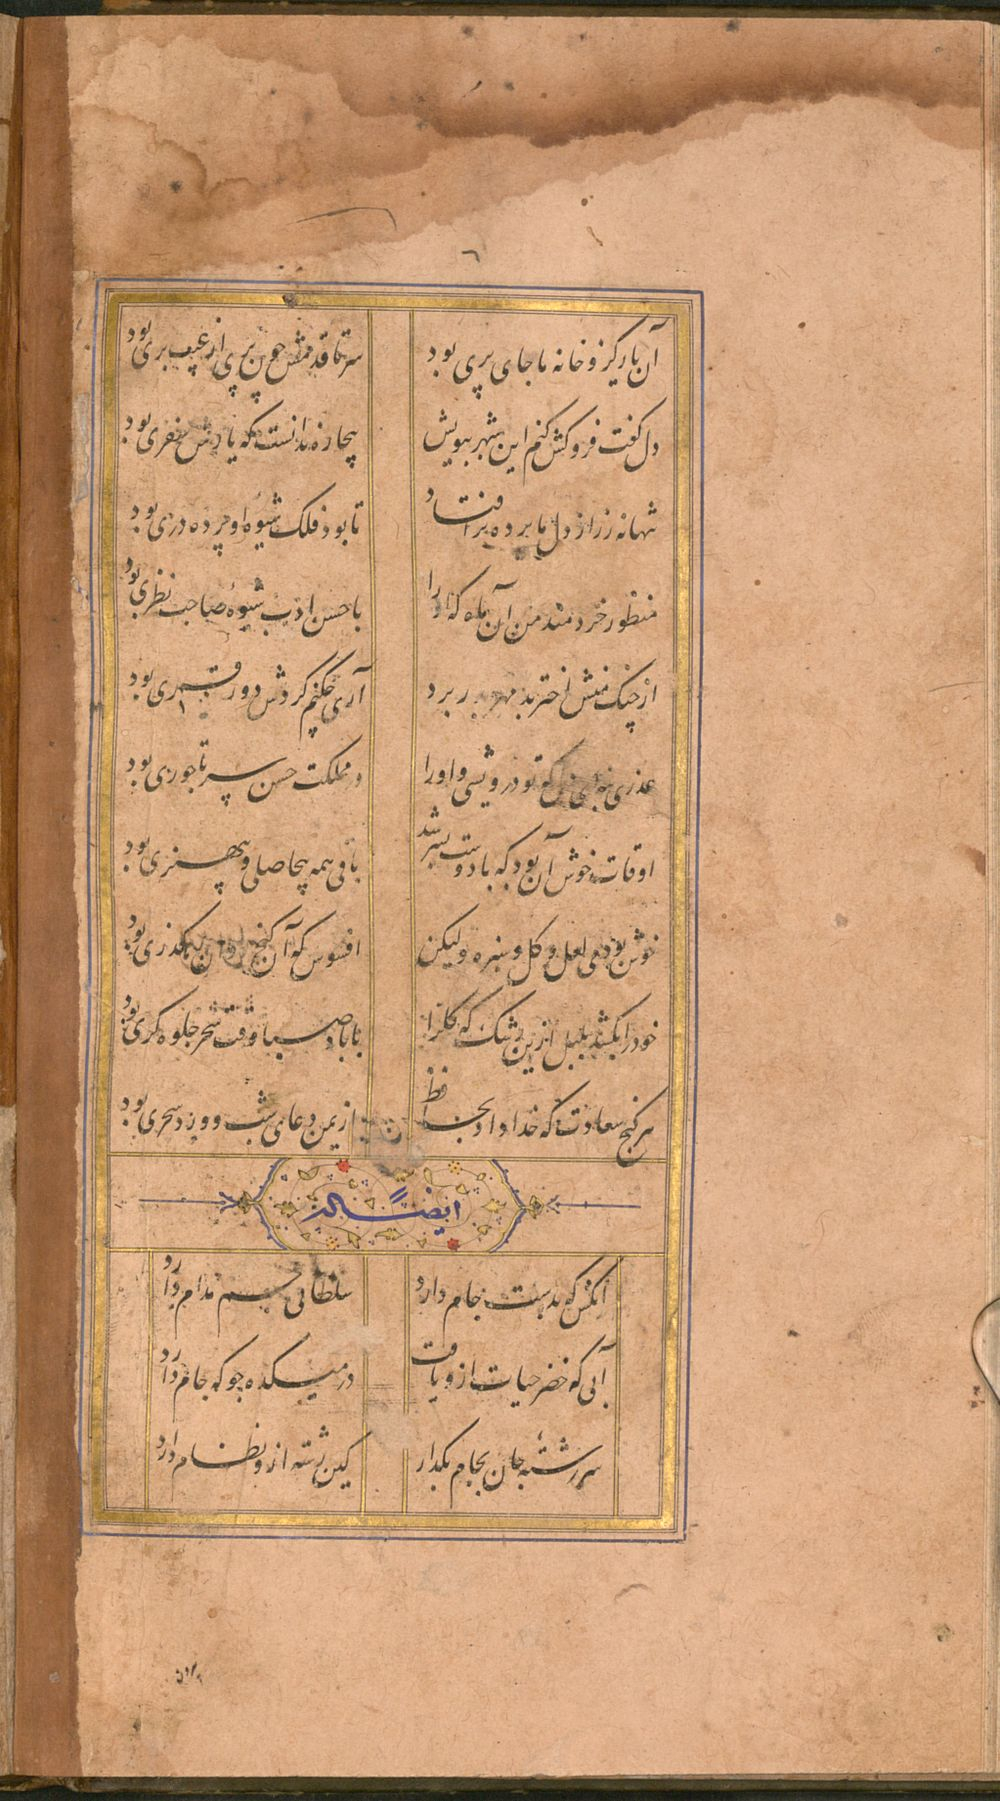 ٦
آن یار کزو خانه ما جای پری بود سر تا قدمش چون پری از عیب بری بود
دل گفت فروکش کنم این شهر ببویش بیچاره ندانست که یارش سفری بود
تنها نه ز راز دل ما پرده برافتاد تا بود فلک شیوه او پرده دری بود
منظور خردمند من آن ماه که او را با حسن ادب شیوهٔ صاحب نظری بود
از چنک منش اختر بدمهر بدر برد آری چکنم گردش دور قمری بود
عذری که تو درویشی و او را در مملکت حسن سر تاجوری بود
اوقات خوش آن بود که با دوست بسر شد باقی همه بیحاصلی و بیهنری بود
خوش بود می لعل و گل و سبزه ولیکن افسوس که آن گنج گذری بود
خود را بکشد بلبل ازین رشک که گل را با باد صبا وقت سحر جلوه گری بود
هر گنج سعادت که خدا داد بحافظ از یمن دعای شب و ورد سحری بود
ایضاً له
آنکس که بدست جام دارد سلطانی جم مدام دارد
آبی که خضر حیات ازو یافت در میکده جو که جام دارد
سررشتهٔ جان بجام بگذار کین رشته ازو نظام دارد